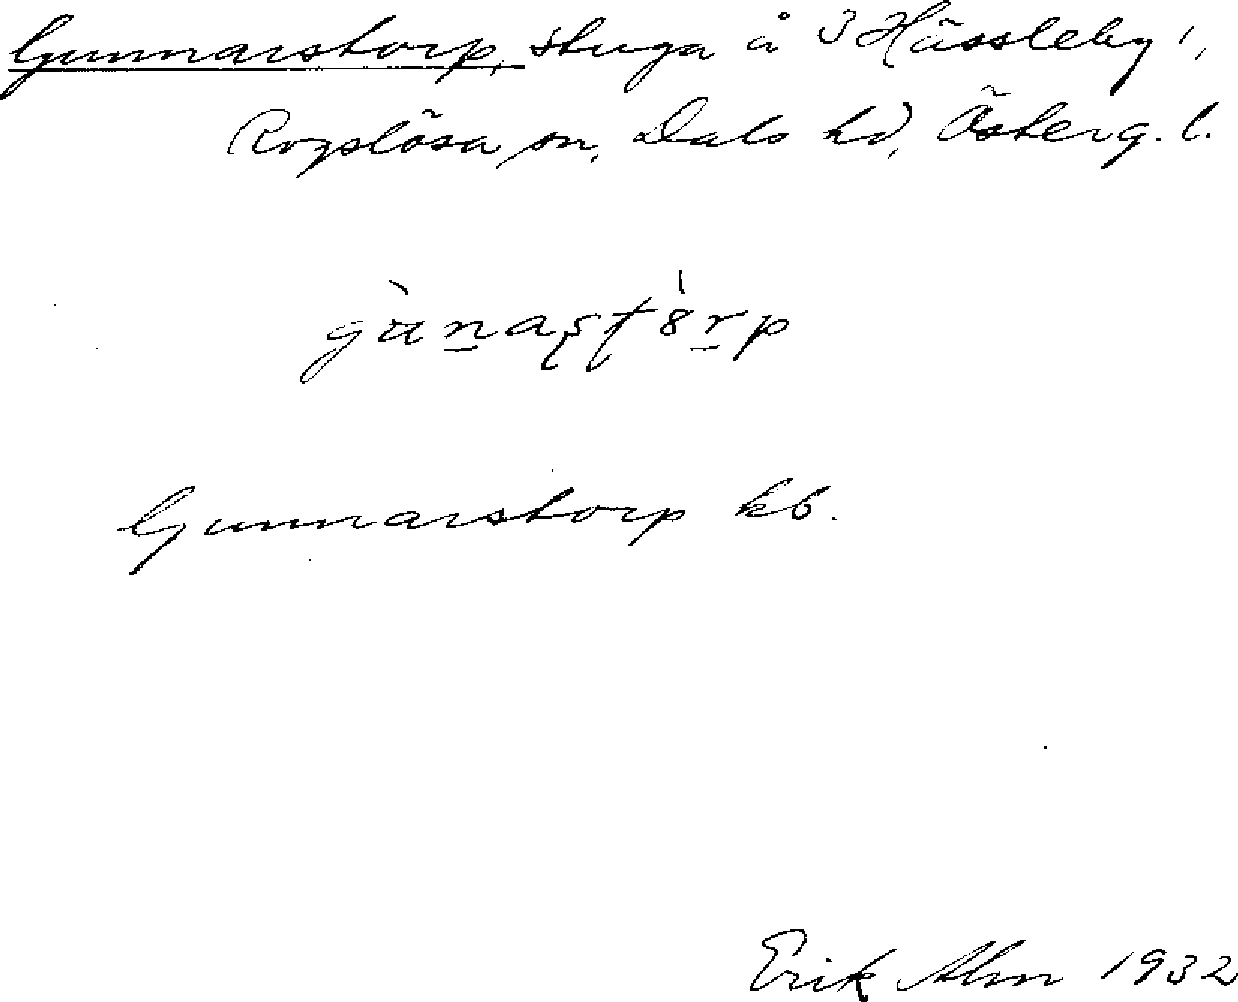 Gunnarstorp, stuga å 3 Hässleby 1,
Rogslösa sn, Dals hd, Österg. l.
Gunnarstorp kb.
Erik Alm 1932